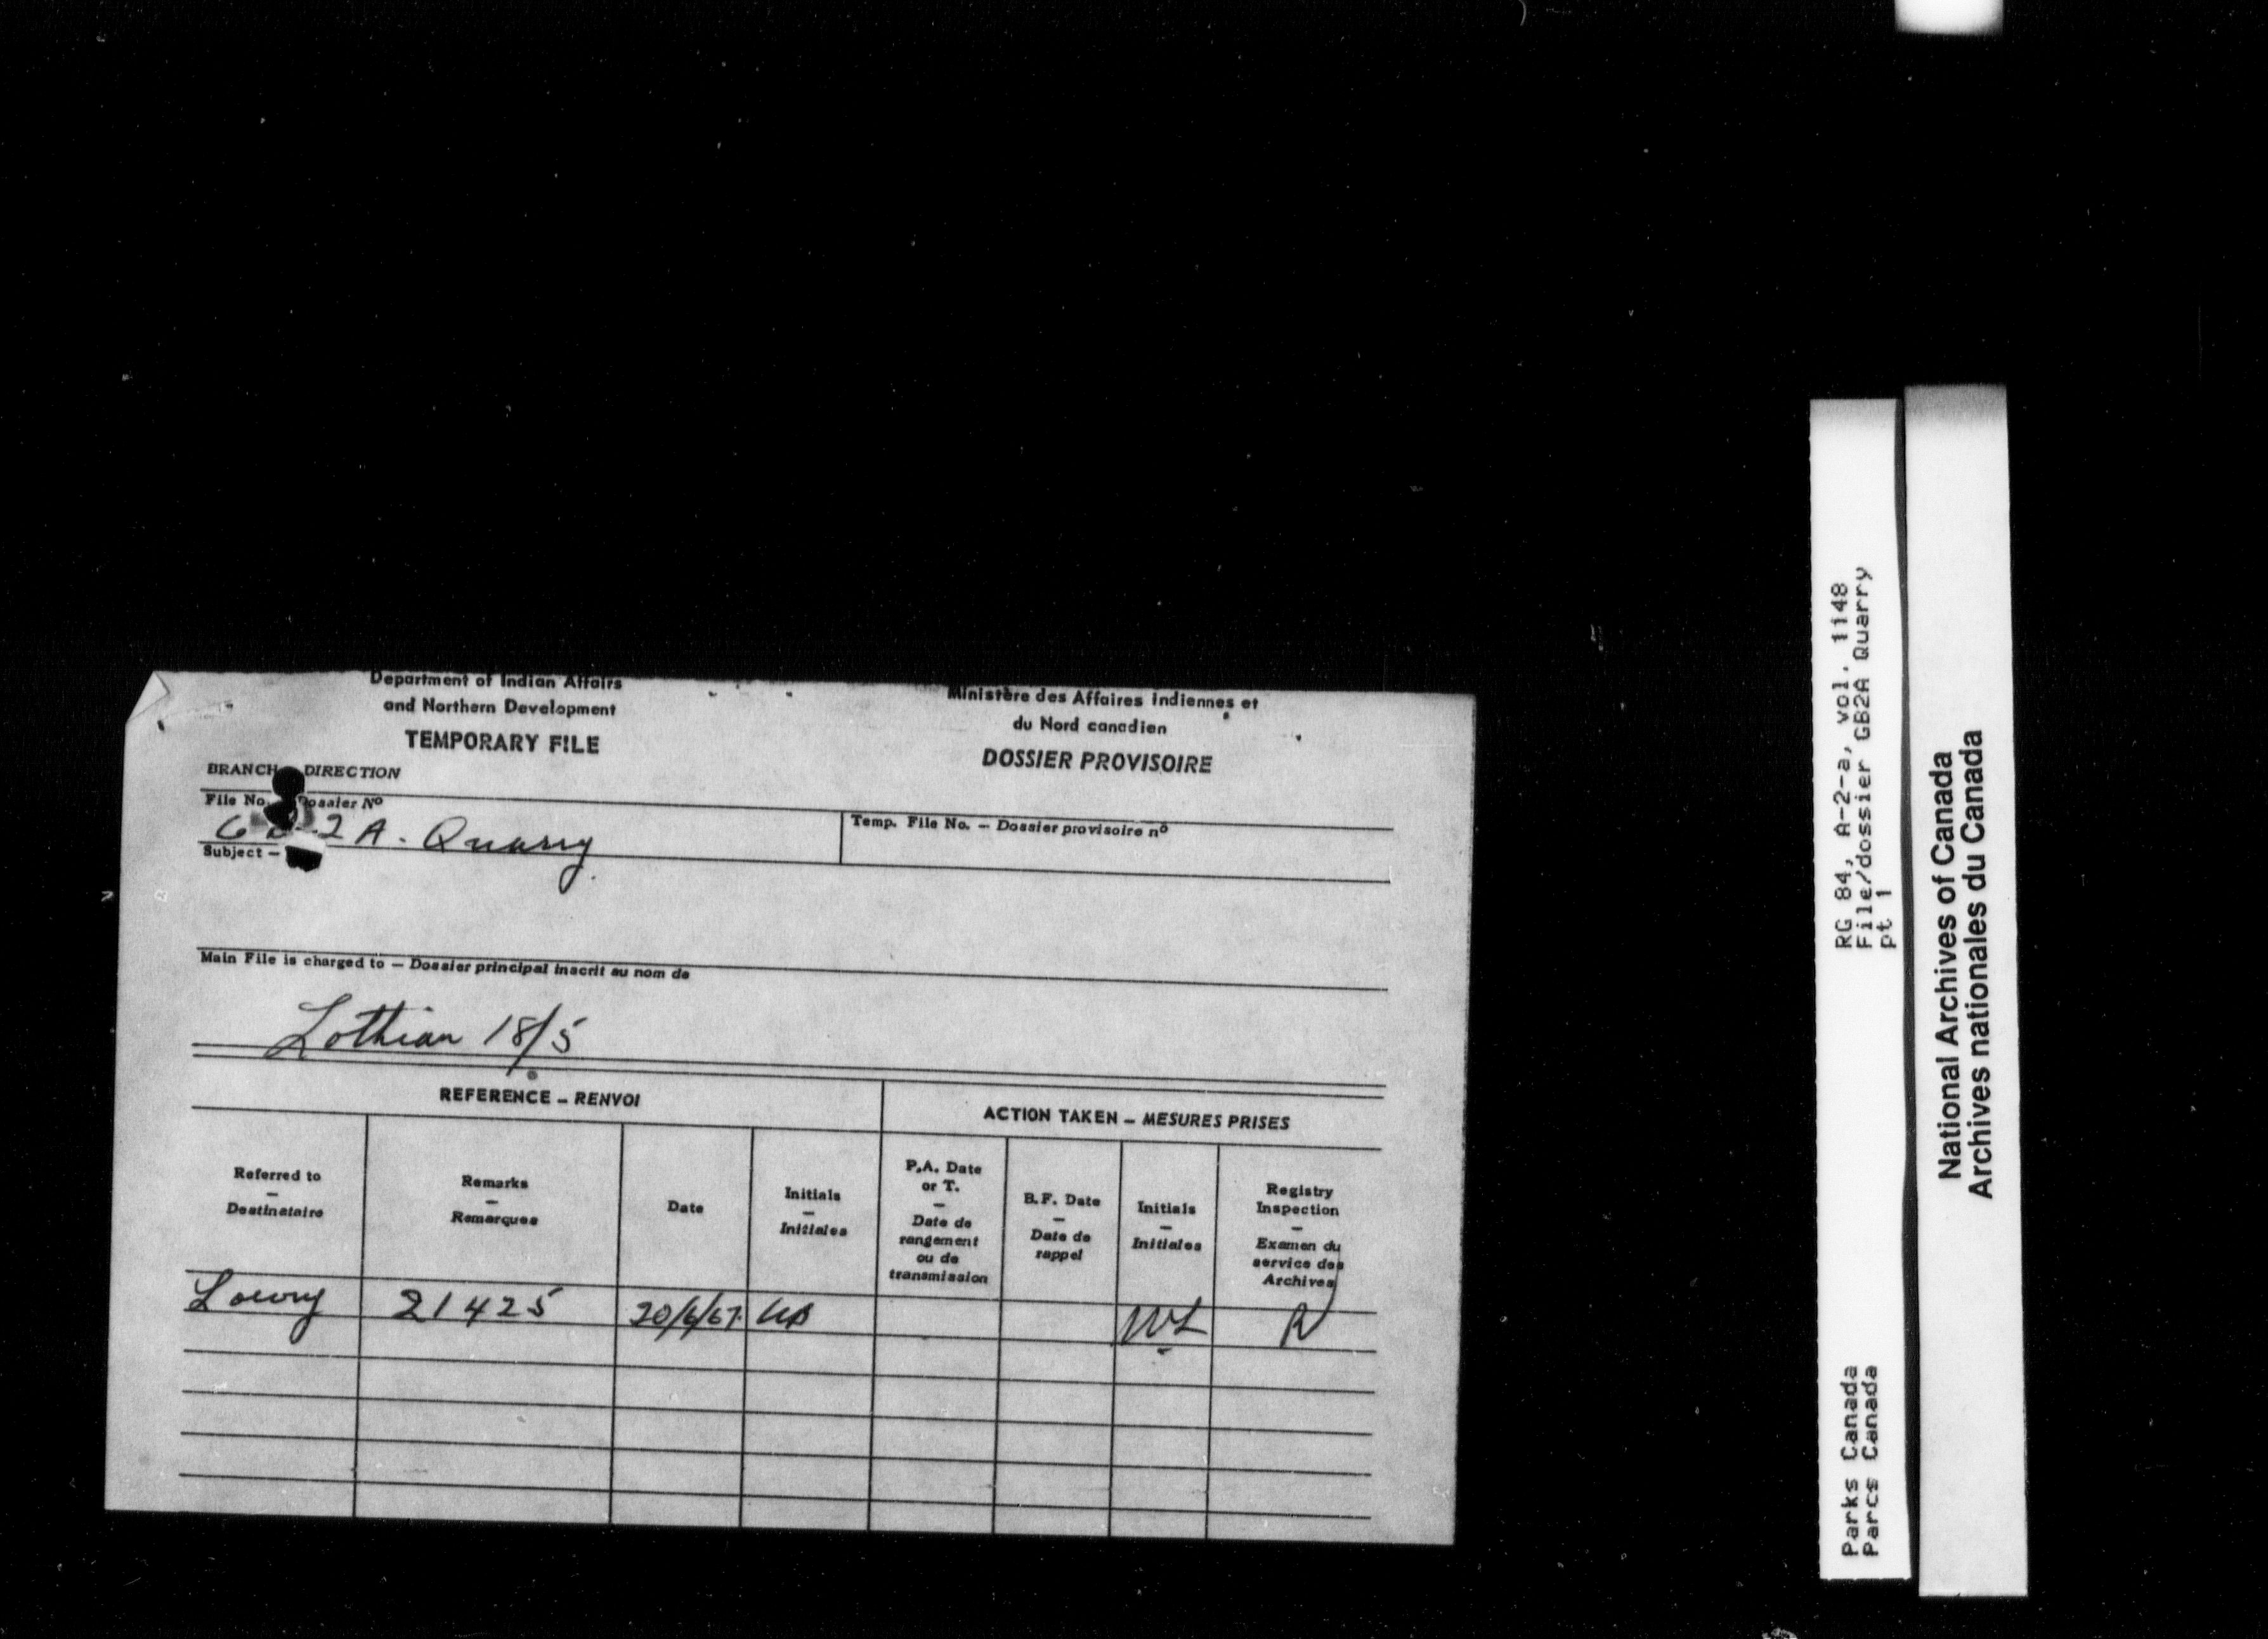 Department of Indian Affairs
and Northern Development
TEMPORARY FILE
Ministère des Affaires indiennes et
du Nord canadien
DOSSIER PROVISOIRE
BRANCH DIRECTION
File No. Dossier Nº
2 A - Quarry
Temp. File No. — Dossier provisoire nº
Subject —
Main File is charged to — Dossier principal inscrit au nom de
Lothian 18/5
REFERENCE — RENVOI
ACTION TAKEN — MESURES PRISES
Referred to
—
Destinataire
Remarks
—
Remarques
Date
Initials
—
Initiales
P.A. Date
or T.
—
Date de
rangement
ou de
transmission
B.F. Date
—
Date de
rappel
Initials
—
Initiales
Registry
Inspection
—
Examen du
service des
Archives
Lowry 21425 20/6/67 WL
RG 84, A-2-a, vol. 1148
File/dossier GB2A Quarry
pt 1
Parks Canada
Parcs Canada
National Archives of Canada
Archives nationales du Canada